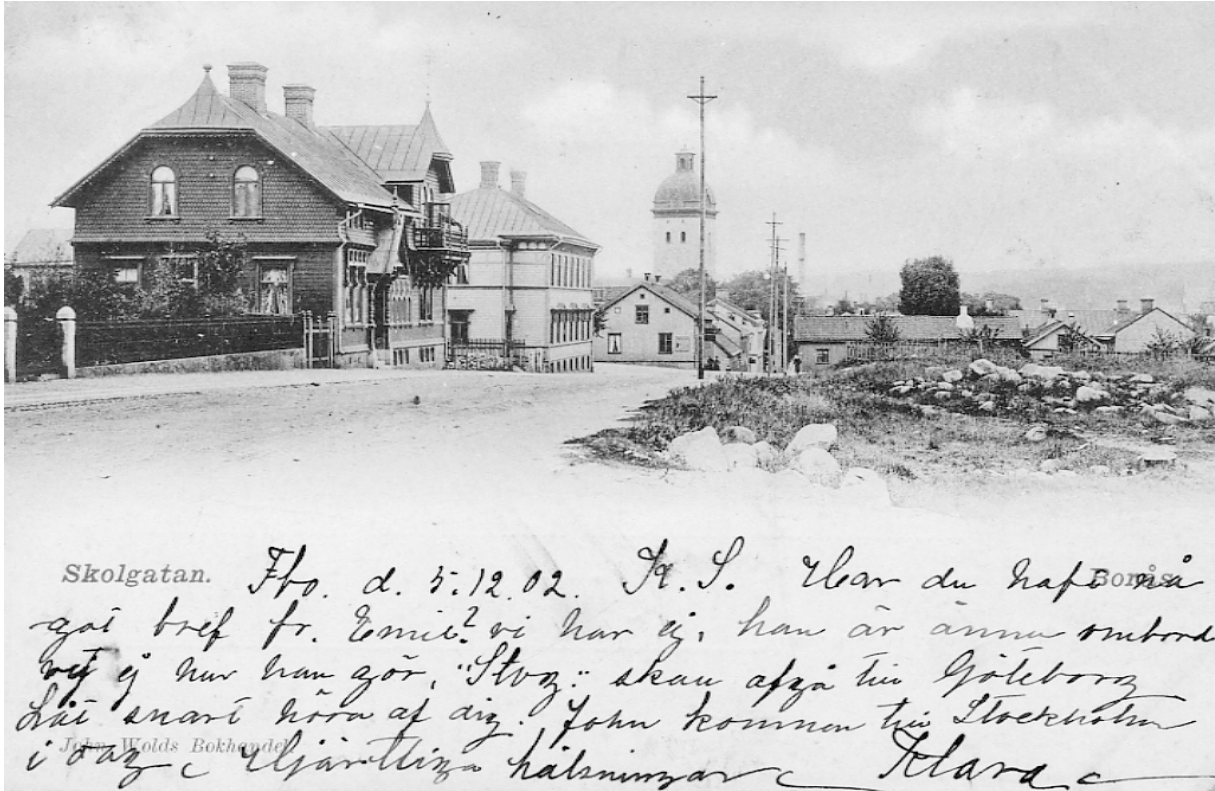 Skolgatan.
Borås.
Fbo. d. 5.12.02. K. S. Har du haft nå
got bref fr. Emil? vi har ej, han är ännu ombord
vet ej hur han gör, skall afgå till Göteborg
Låt snart höra af dig. John kommer till Stockholm
i dag Hjärtliga hälsningar Klara
John Wolds Bokhandel